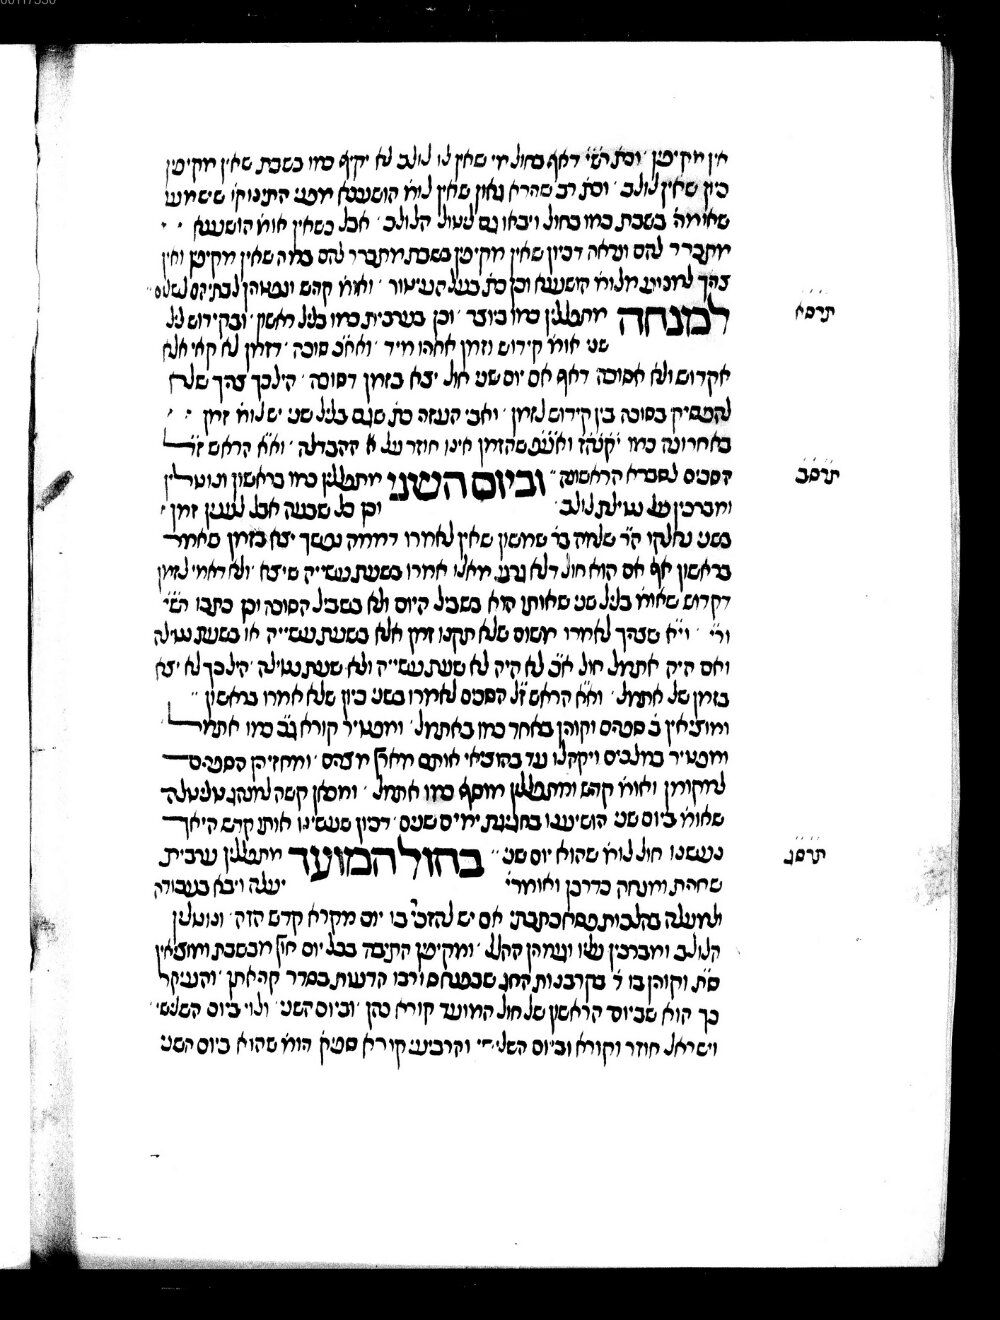 אין מקיפין וכת׳ רש״י דאף בחול מי שאין לו לולב לא יקיף כמו בשבת שאין מקיפין
כיון שאין לולב וכת׳ רב שרירא גאון שאין לומ׳ הושענא מפני התינוקו׳ שישמעו
שאומרי׳ בשבת כמו בחול ויבאו גם ליטול הלולב אבל כשאין אומ׳ הושענא
מתברר להם ונראה דכיון שאין מקיפין בשבת מתברר להם במה שאין מקיפין ואין
צריך למנוע מלומ׳ הושענא וכן כת׳ בעל העיטור ואומ׳ קדיש ונפטרין לבתיהם לשלום
תרסא
למנחה מתפללין כמו ביוצר וכן בערבית כמו בליל ראשון ובקידוש ליל
שני אומ׳ קידוש וזמן אחריו מיד ואח״כ סוכה דזמן לא קאי אלא
אקדוש ולא אסוכה דאף אם יום שני חול יצא בזמן דסוכה הילכך צריך שלא
להפסיק בסוכה בין קידוש לזמן ואבי העזרי כת׳ שגם בליל שני יש לומ׳ זמן
באחרונה כמו יקנה״ז ואע״פ שהזמן אינו חוזר על ההבדלה וא״א הרא״ש ז״ל
תרסב
הסכים לסברא הראשונה וביום השני מתפללין כמו בראשון ונוטלין
ומברכין על נטילת לולב וכן כל שבעה אבל לענין זמן
בשני נחלקו ה״ר שלמה בר שמשון שאין לאמרו דממה נפשך יצא בזמן שאמר
בראשון אף אם הוא חול דלא גרע מאלו אמרו בשעת עשייה שיצא ולא דאמי לזמן
דקדוש שאומ׳ בליל שני שאותו הוא בשביל היום ולא בשביל הסוכה וכן כתבו רש״י
ור״י וי״א שצריך לאמרו משום שלא תקנו זמן אלא בשעת עשייה או בשעת נטילה
ואם היה אתמול חול א״כ לא היה לא שעת עשייה ולא שעת נטילה הילכך לא יצא
בזמן של אתמול וא״א הרא״ש ז״ל הסכים לאמרו בשני כיון שלא אמרו בראשון
ומוציאין ב׳ ספרים וקורין באחד כמו באתמול ומפטיר קורא ג״כ כמו אתמול
ומפטיר במלכים ויקהלו עד בהוציאי אותם מארץ מצרים ומחזירין הספרים
למקומן ואומ׳ קדיש ומתפללין מוסף כמו אתמול ומכאן קשה למנהג טוליטולה
שאומ׳ ביום שני הושיענו בחגיגת ימים שנים דכיון שעשינו אותו קדש היאך
תרסג
נעשנו חול לומ׳ שהוא יום שני בחול המועד מתפללין ערבית
שחרית ומנחה כדרכן ואומרי׳ יעלה ויבא בעבודה
ולמעלה בהלכות פסח כתבתי אם יש להזכי׳ בו יום מקרא קדש הזה ונוטלין
הלולב ומברכין עליו וגומרין ההלל ומקיפין התיבה בכל יום חוץ מבשבת ומוציאין
ס״ת וקורין בו ד׳ בקרבנות החג שבפנחס ורבו הדעות בסדר קריאתן והעיקר
כך הוא שביום הראשון של חול המועד קורא כהן וביום השני ולוי ביום השלישי
וישראל חוזר וקורא וביום השלישי והרביעי קורא ספיק׳ היום שהוא ביום השני